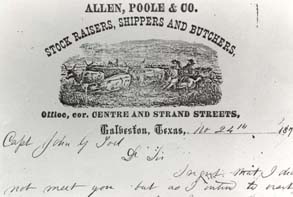 ALLEN, POOLE & CO.
STOCK RAISERS, SHIPPERS AND BUTCHERS,
Office, cor. CENTRE AND STRAND STREETS,
Galveston, Texas, Nov 24th 187
Capt John G Tod
Dr Sir
I regret that I did
not meet you but as I intend to